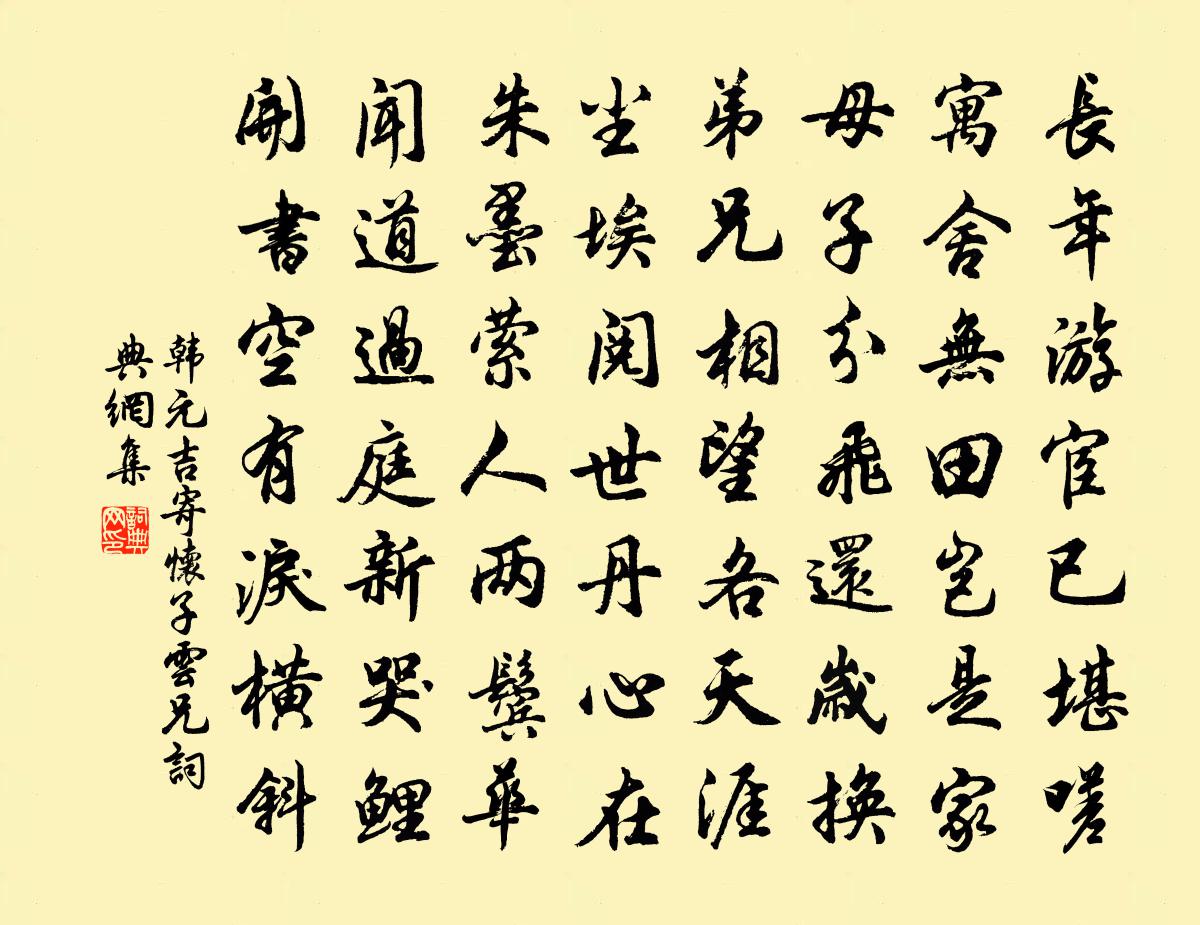 長年游宦已堪嗟
寓舍無田豈是家
母子分飛還歲換
弟兄相望各天涯
尘埃閱世丹心在
朱墨萦人两鬓華
聞道過庭新哭鯉
開書空有淚橫斜
韩元吉寄懷子雲兄詞
典網集
詞典
网印